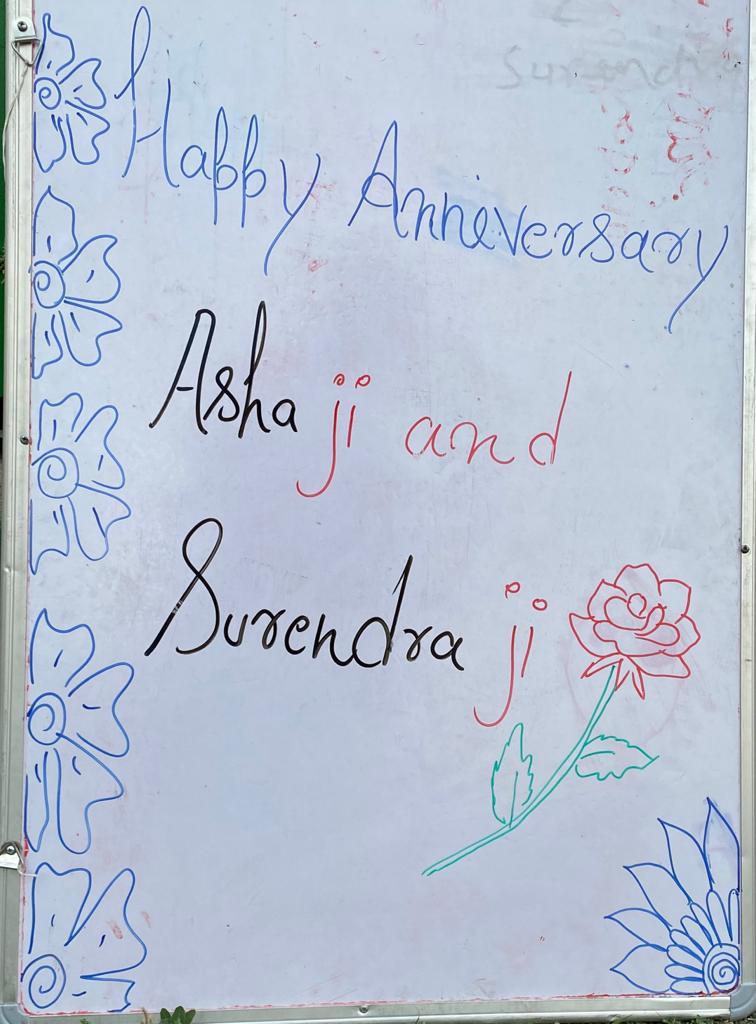 Happy Anniversary
Asha ji and
Surendra ji